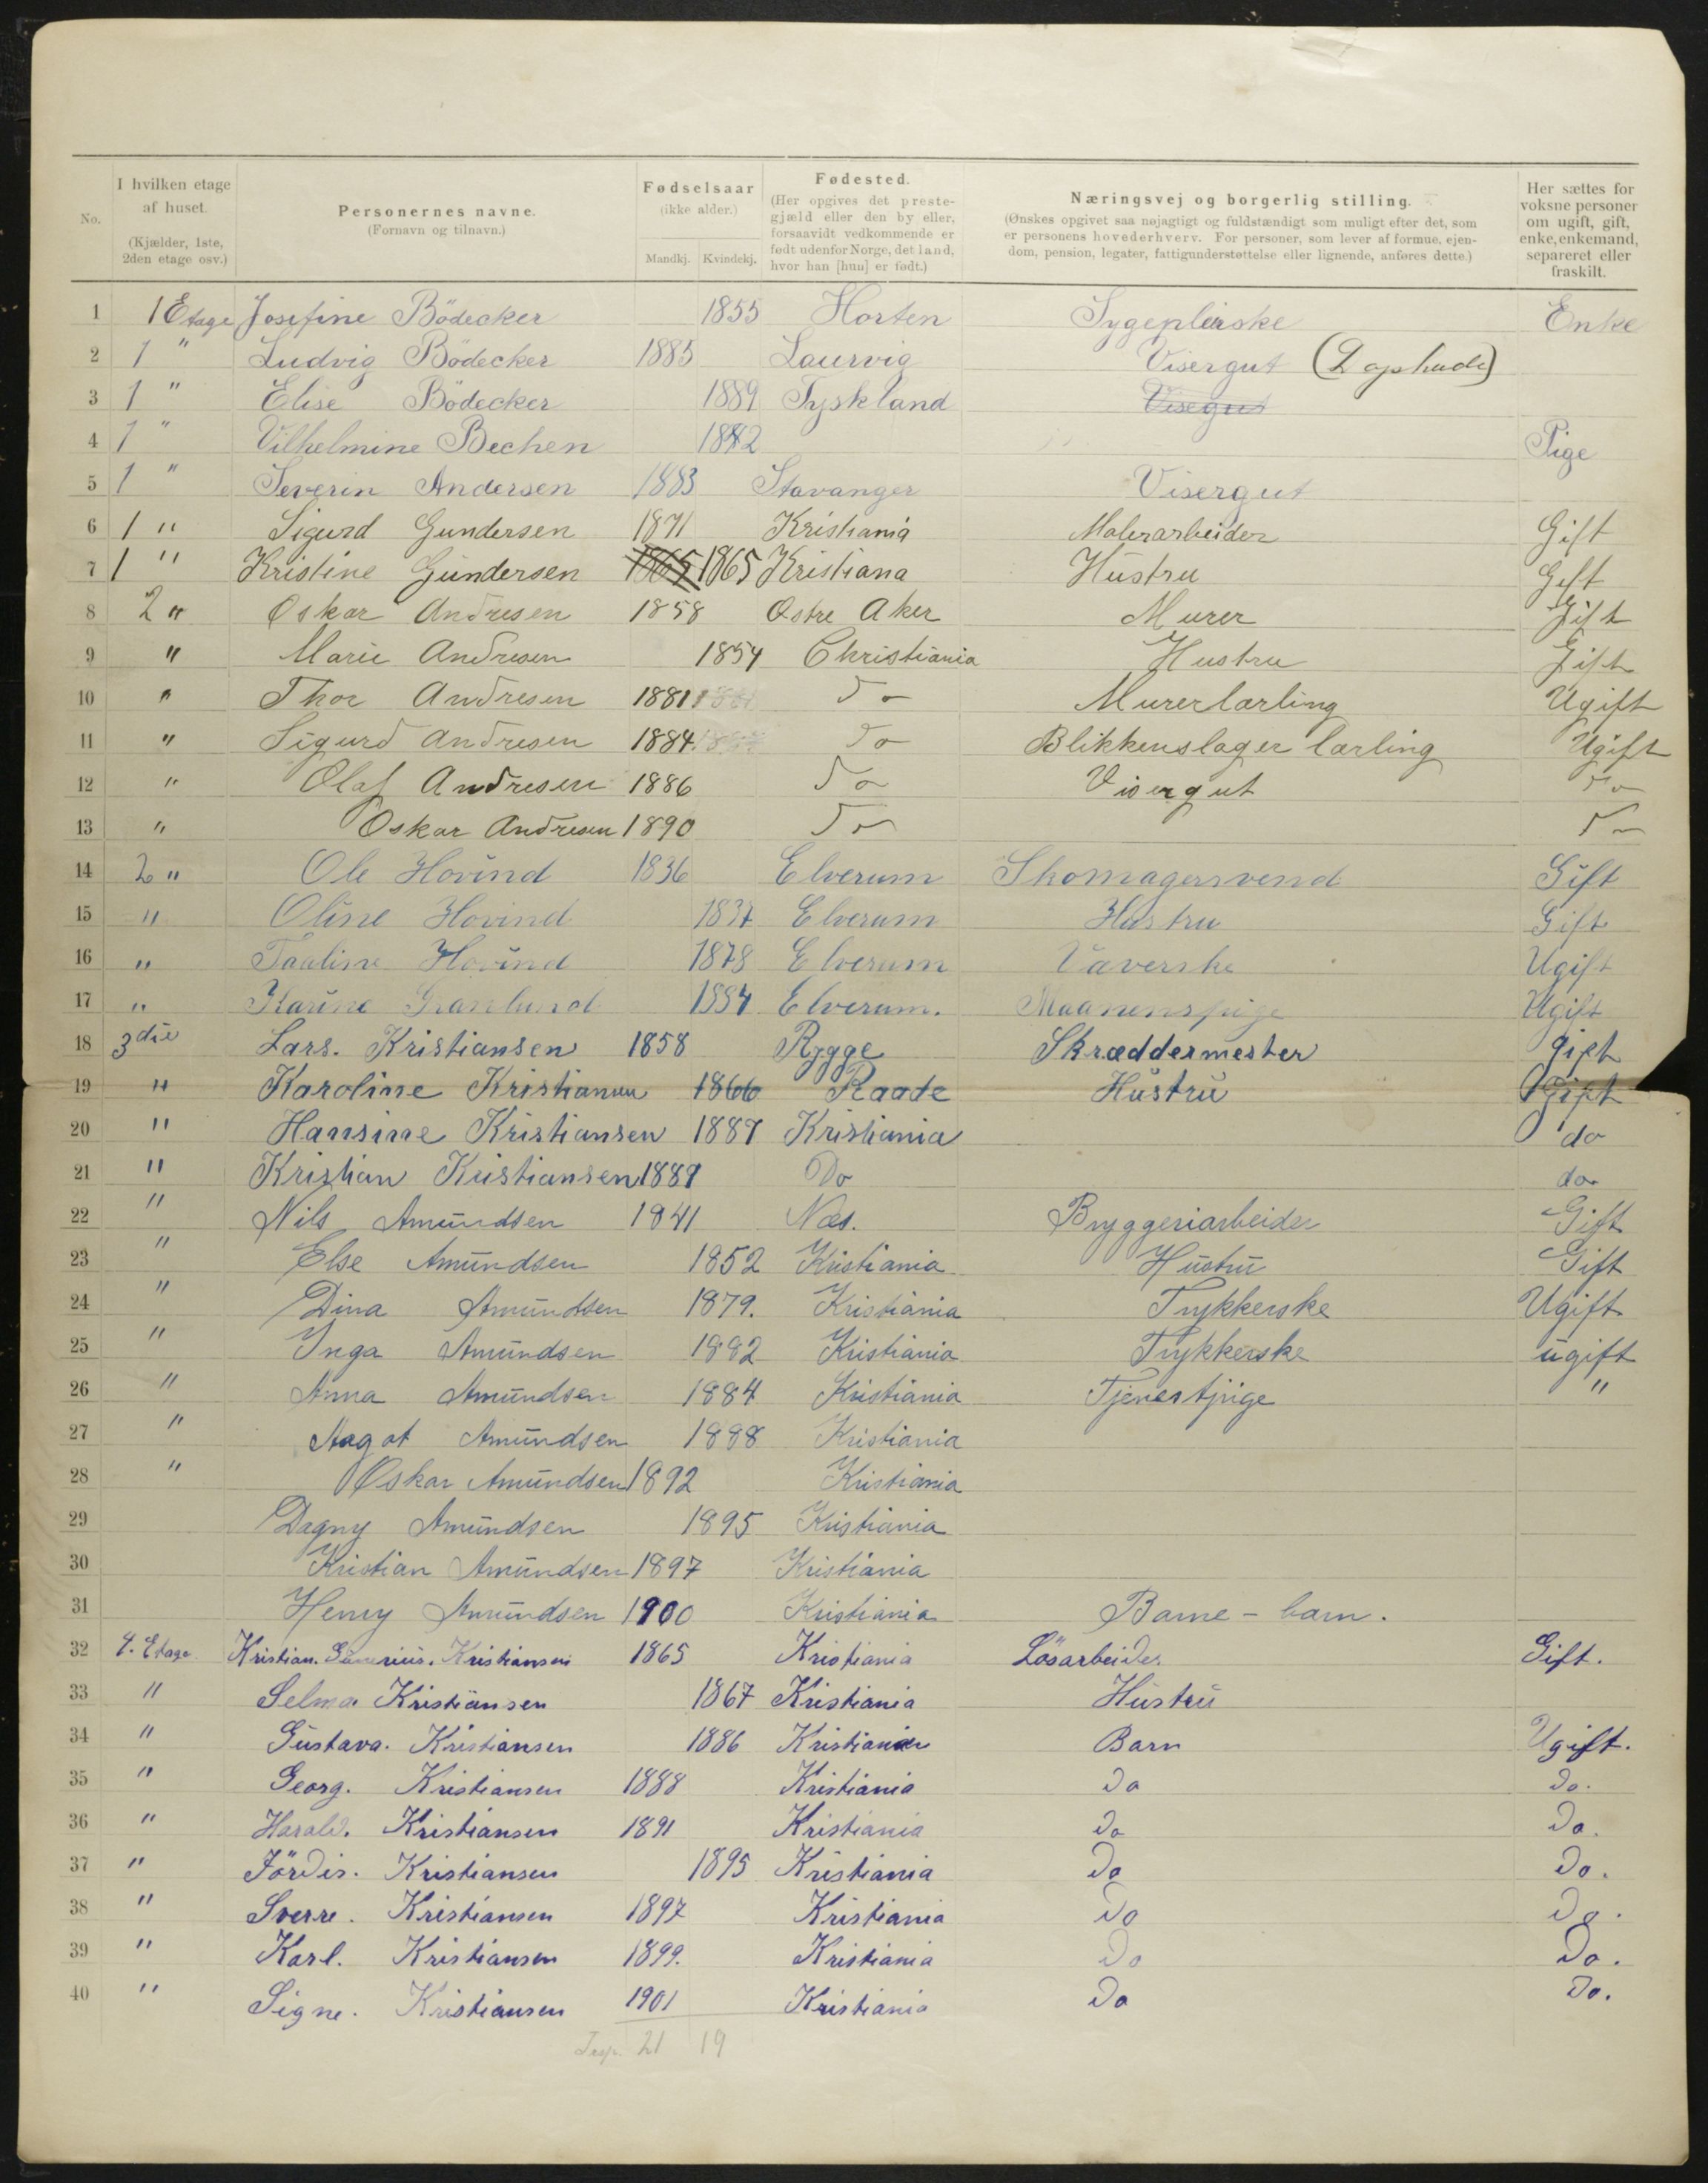 No.
I hvilken etage af huset.
(Kjælder, 1ste, 2den etage osv.)
Personernes navne.
(Fornavn og tilnavn.)
Fødselsaar
(ikke alder.)
Mandkj. Kvindekj.
Fødested.
(Her opgives det prestegjæld eller den by eller, forsaavidt vedkommende er født udenfor Norge, det land, hvor han [hun] er født.)
Næringsvej og borgerlig stilling.
(Ønskes opgivet saa nøjagtigt og fuldstændigt som muligt efter det, som er personens hovederhverv. For personer, som lever af formue, ejendom, pension, legater, fattigunderstøttelse eller lignende, anføres dette.)
Her sættes for voksne personer om ugift, gift, enke, enkemand, separeret eller fraskilt.
1 1 Etage Josefine Bödecker 1855 Horten Sygepleirske Enke
2 1 " Ludvig Bödecker 1885 Laurvig Visergut
3 1 " Elise Bödecker 1889 Tyskland Visegut
4 1 " Vilhelmine Bechen 1882 Pige
5 1 " Severin Andersen 1883 Stavanger Visergut
6 1 " Sigurd Gundersen 1871 Kristiania Malerarbeider Gift
7 1 " Kristine Gundersen 1865 1865 Kristiana Hustru Gift
8 2 " Oskar Andresen 1858 Østre Aker Murer Gift
9 " Marie Andresen 1854 Christiania Hustru Gift
10 " Thor Andresen 1881 1881 Do Murerlærling Ugift
11 " Sigurd Andresen 1884 Do Blikkenslager lærling Ugift
12 " Olaf Andresen 1886 Do Visergut Do
13 " Oskar Andresen 1890 Do Do
14 2 " Ole Hovind 1836 Elverum Skomagersvend Gift
15 " Oline Hovind 1837 Elverum Hustru Gift
16 " Paaline Hovind 1878 Elverum Væverske Ugift
17 " Karine Granlund 1884 Elverum. Maanenspige Ugift
18 3die Lars. Kristiansen 1858 Rygge Skræddermester gift
19 " Karoline Kristiansen 1866 Raade Hustru Gift
20 " Hansine Kristiansen 1887 Kristiania do
21 " Kristian Kristiansen 1889 Do do
22 " Nils Amundsen 1841 Næs. Bryggeriarbeider Gift
23 " Else Amundsen 1852 Kristiania Hustru Gift
24 " Dina Amundsen 1879. Kristiania Trykkerske Ugift
25 " Inga Amundsen 1882 Kristiania Trykkerske ugift
26 " Anna Amundsen 1884 Kristiania Tjenestpige "
27 " Aagot Amundsen 1888 Kristiania
28 " Oskar Amundsen 1892 Kristiania
29 Dagny Amundsen 1895 Kristiania
30 Kristian Amundsen 1897 Kristiania
31 Henry Amundsen 1900 Kristiania Barne-barn.
32 4. Etage Kristian. Kristiansen 1865 Kristiania Lösarbeider Gift.
33 " Selma Kristiansen 1867 Kristiania Hustru
34 " Gustava. Kristiansen 1886 Kristiania Barn Ugift.
35 " Georg. Kristiansen 1888 Kristiania Do Do.
36 " Harald. Kristiansen 1891 Kristiania Do Do.
37 " Jördis. Kristiansen 1895 Kristiania Do Do.
38 " Sverre. Kristiansen 1897 Kristiania Do Do.
39 " Karl. Kristiansen 1899. Kristiania Do Do.
40 " Signe. Kristiansen 1901 Kristiania Do Do.
21 19